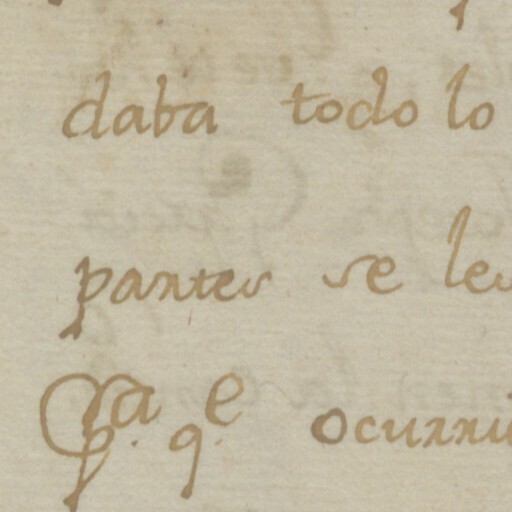 daba todo lo
partes se les
pa. qe. ocurri